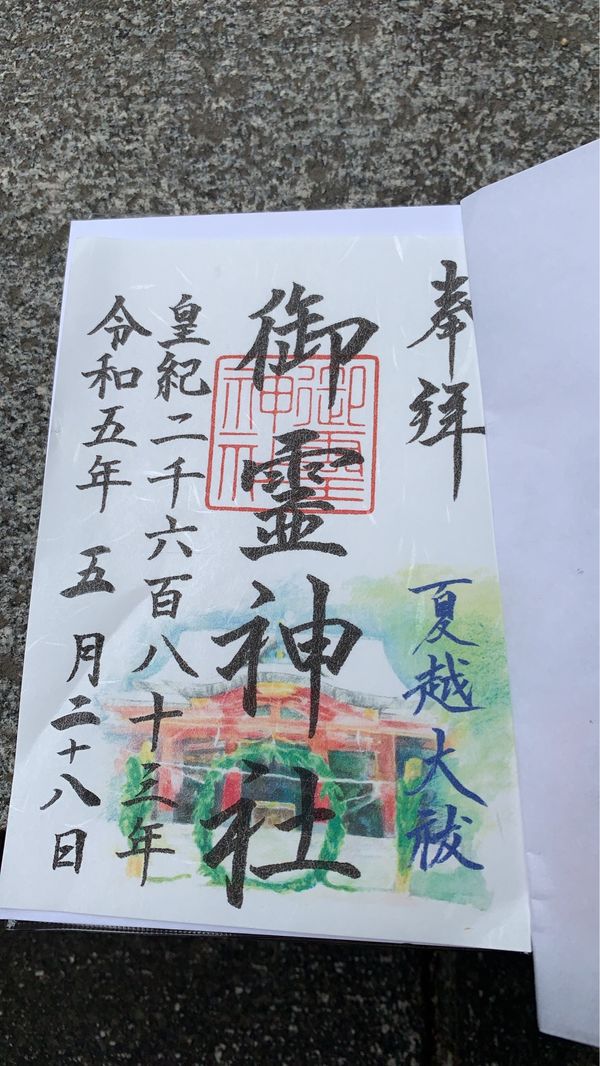 奉拝
夏越大祓
御靈神社
御靈神社
皇紀二千六百八十三年
令和五年 五月二十八日